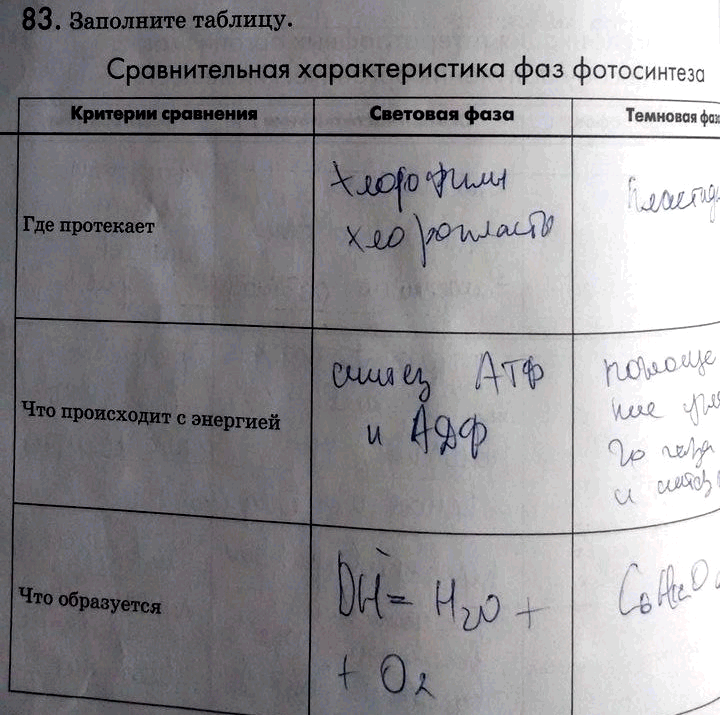 83. Заполните таблицу.
Сравнительная характеристика фаз фотосинтеза
Критерии сравнения
Световая фаза
Темновая фаз
Где протекает
хлорофилл
хлоропласты
Что происходит с энергией
синтез АТФ
и АДФ
поглоще
ние угл
го газа
и синтез
Что образуется
OH = H2O +
+ O2
C6H12O